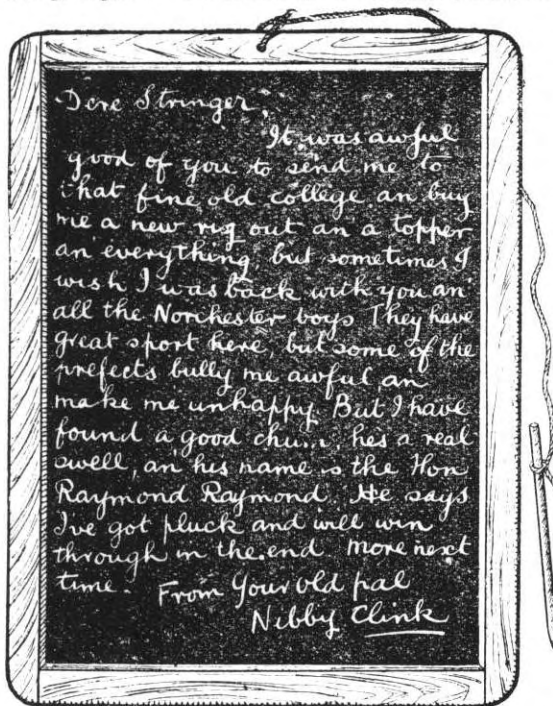 Dere Stringer,
It was awful
good of you to send me to
that fine old college an buy
me a new rig out an a topper
an everything, but sometimes I
wish I was back with you an
all the Norchester boys They have
great sport here, but some of the
prefects bully me awful an
make me unhappy. But I have
found a good chum, hes a real
swell, an his name is the Hon
Raymond Raymond. He says
I've got pluck and will win
through in the end. More next
time. From Your old pal
Nibby Clink